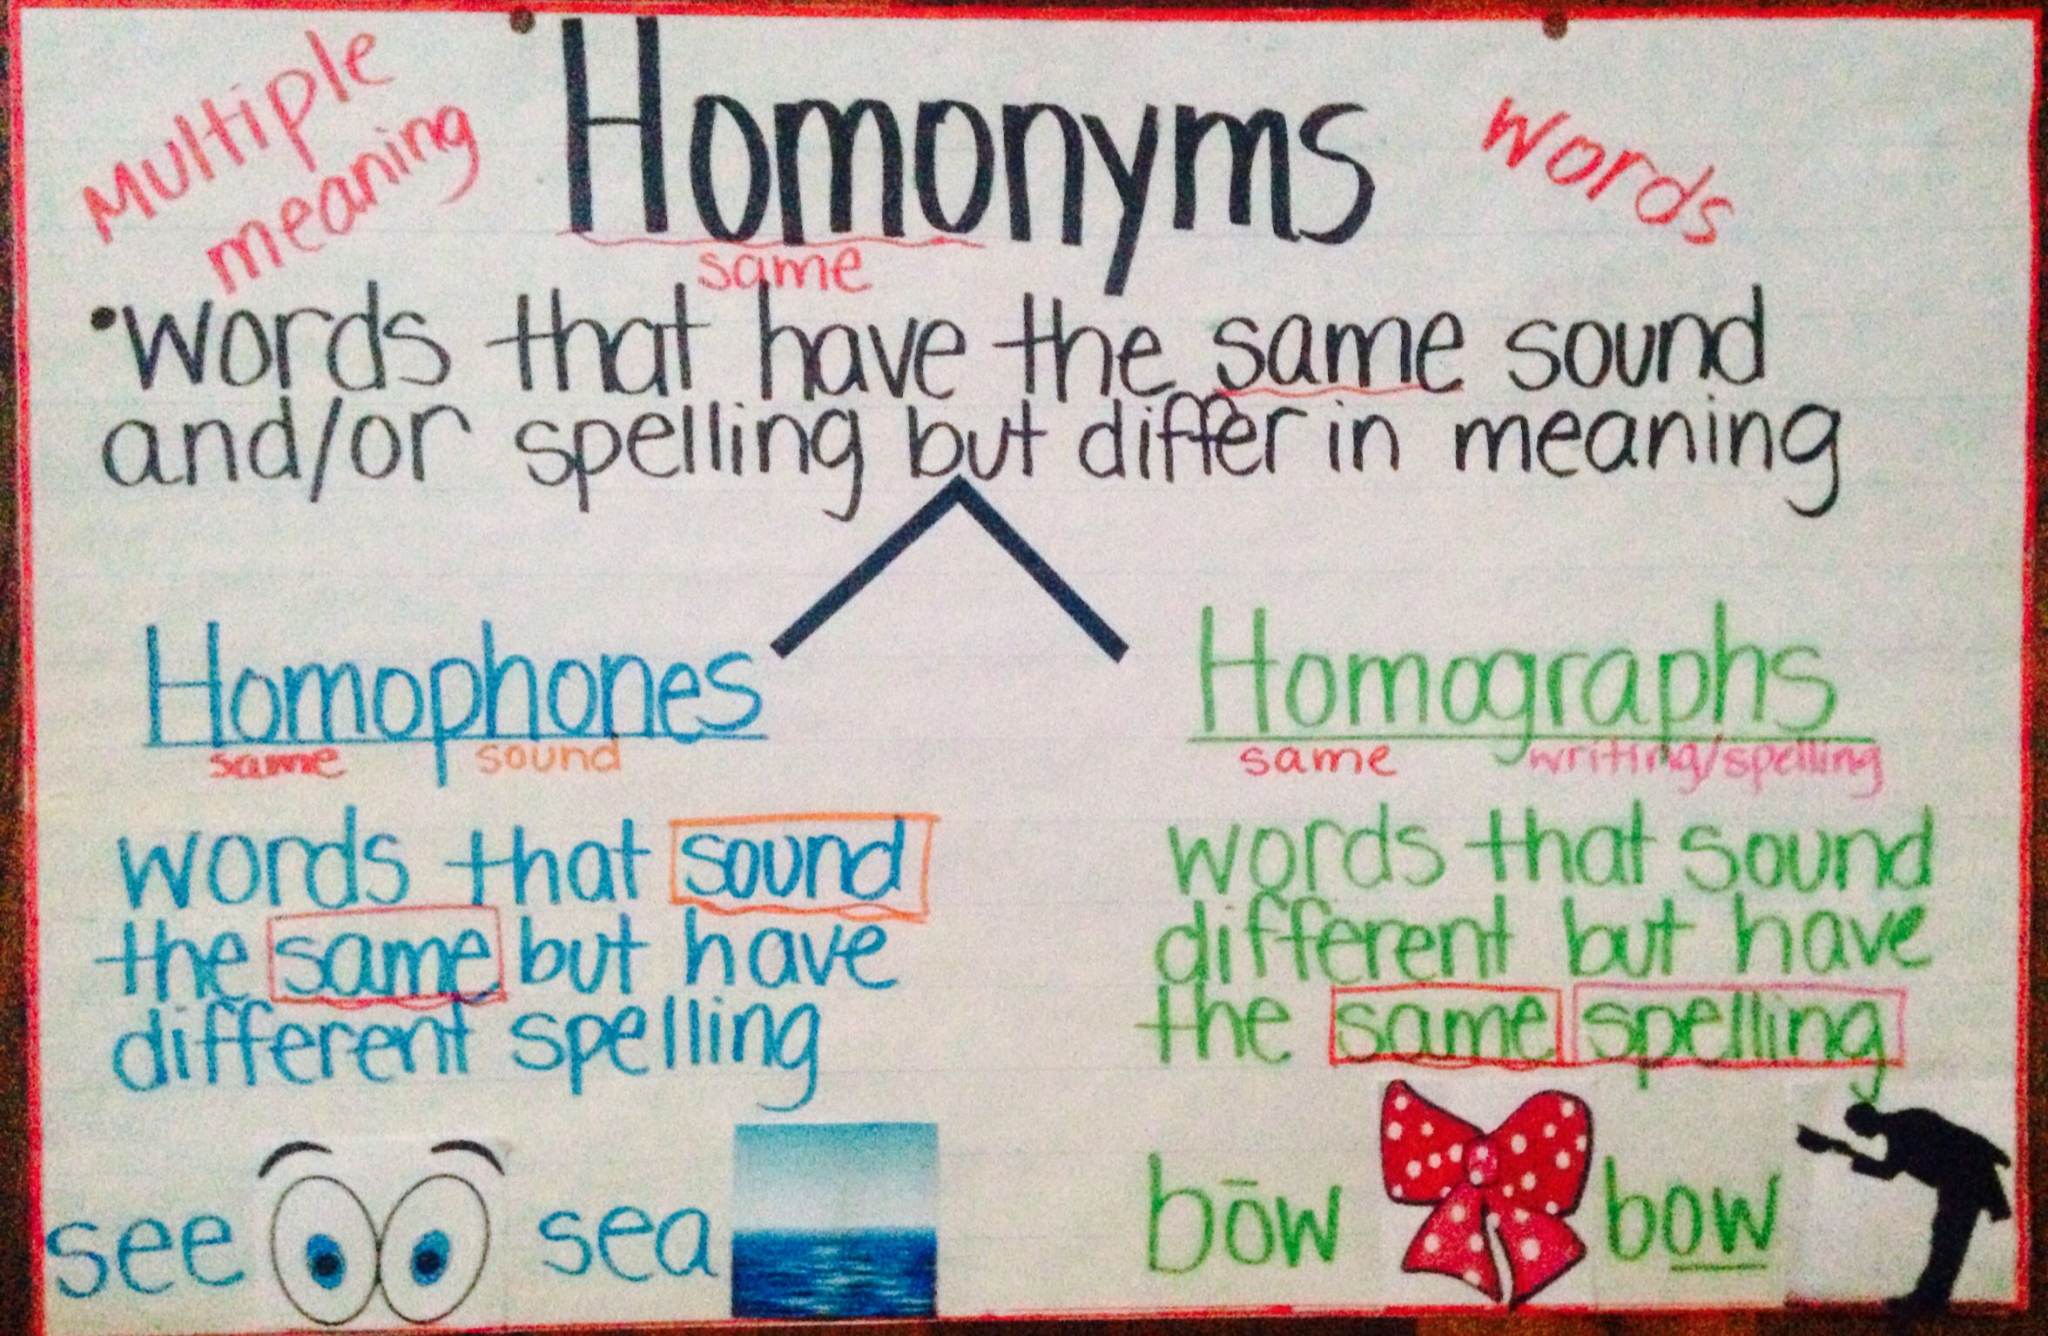 Multiple
meaning
Homonyms
words
same
•words that have the same sound
and/or spelling but differ in meaning
Homophones
same sound
words that sound
the same but have
different spelling
see sea
Homographs
same writing/spelling
words that sound
different but have
the same spelling
bōw bow